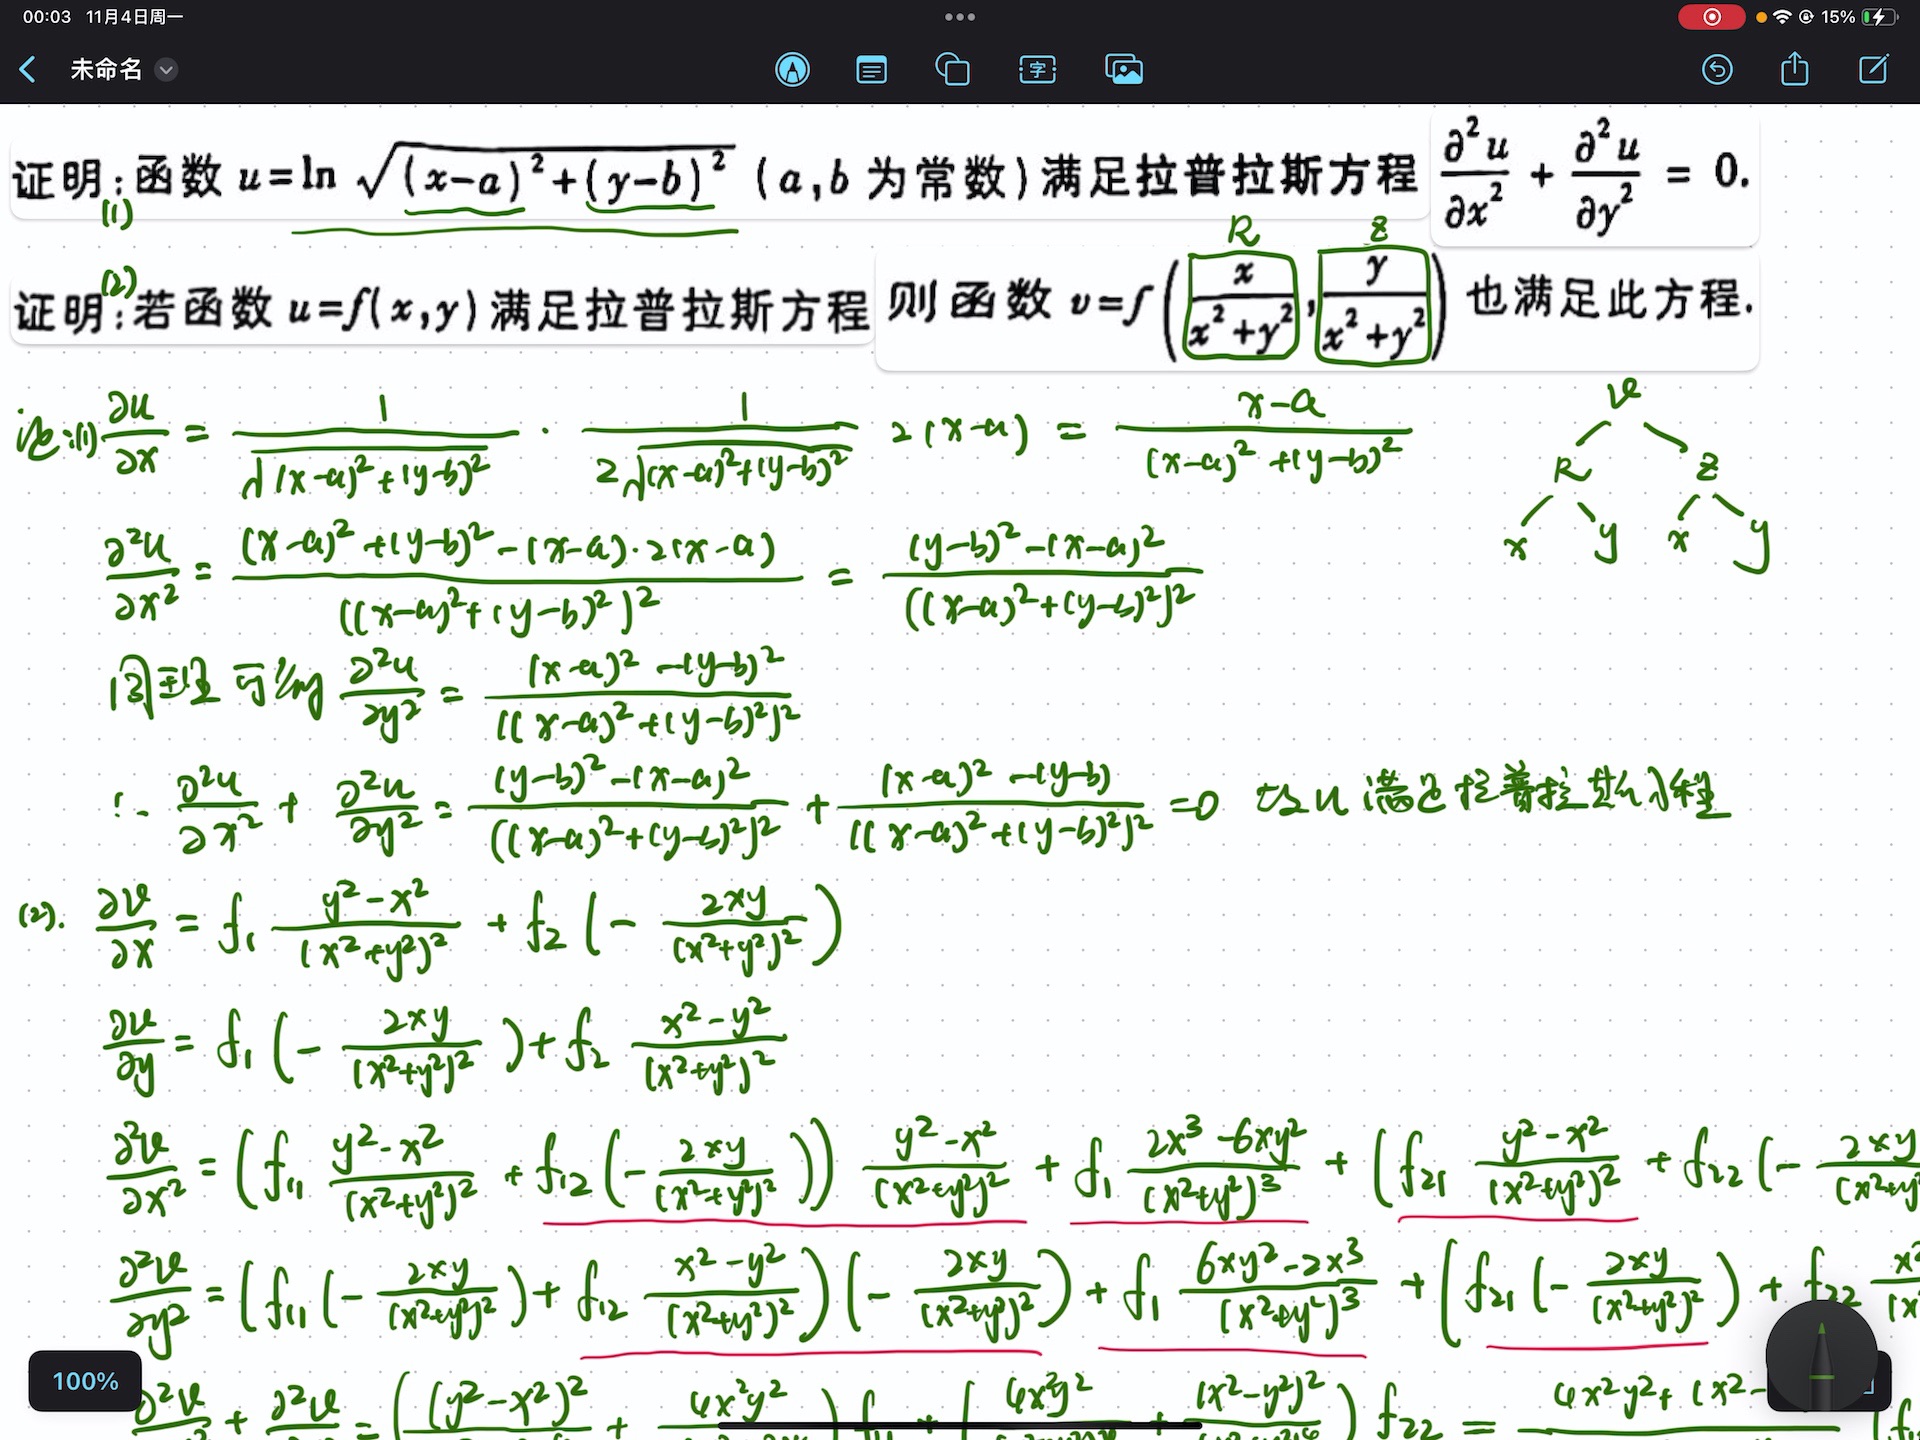 00:03 11月4日周一
15%
未命名
字
证明:函数 u=ln √((x-a)²+(y-b)²) (a,b 为常数)满足拉普拉斯方程 ∂²u/∂x² + ∂²u/∂y² = 0.
(1)
R z
(2)
证明:若函数 u=f(x,y)满足拉普拉斯方程 则函数 v=f(x/(x²+y²), y/(x²+y²)) 也满足此方程.
证:(1) ∂u/∂x = 1/√((x-a)²+(y-b)²) · 1/(2√((x-a)²+(y-b)²)) 2(x-a) = (x-a)/((x-a)²+(y-b)²)
v
R z
x y x y
∂²u/∂x² = ((x-a)²+(y-b)²-(x-a)·2(x-a))/((x-a)²+(y-b)²)² = ((y-b)²-(x-a)²)/((x-a)²+(y-b)²)²
同理可得 ∂²u/∂y² = ((x-a)²-(y-b)²)/((x-a)²+(y-b)²)²
∴ ∂²u/∂x² + ∂²u/∂y² = ((y-b)²-(x-a)²)/((x-a)²+(y-b)²)² + ((x-a)²-(y-b))/((x-a)²+(y-b)²)² =0 故u满足拉普拉斯方程
(2). ∂v/∂x = f₁ (y²-x²)/(x²+y²)² + f₂ (- 2xy/(x²+y²)²)
∂v/∂y = f₁ (- 2xy/(x²+y²)²) + f₂ (x²-y²)/(x²+y²)²
∂²v/∂x² = (f₁₁ (y²-x²)/(x²+y²)² + f₁₂ (- 2xy/(x²+y²)²)) (y²-x²)/(x²+y²)² + f₁ (2x³-6xy²)/(x²+y²)³ + (f₂₁ (y²-x²)/(x²+y²)² + f₂₂ (- 2xy/(x²+y²
∂²v/∂y² = (f₁₁ (- 2xy/(x²+y²)²) + f₁₂ (x²-y²)/(x²+y²)²) (- 2xy/(x²+y²)²) + f₁ (6xy²-2x³)/(x²+y²)³ + (f₂₁ (- 2xy/(x²+y²)²) + f₂₂
100%